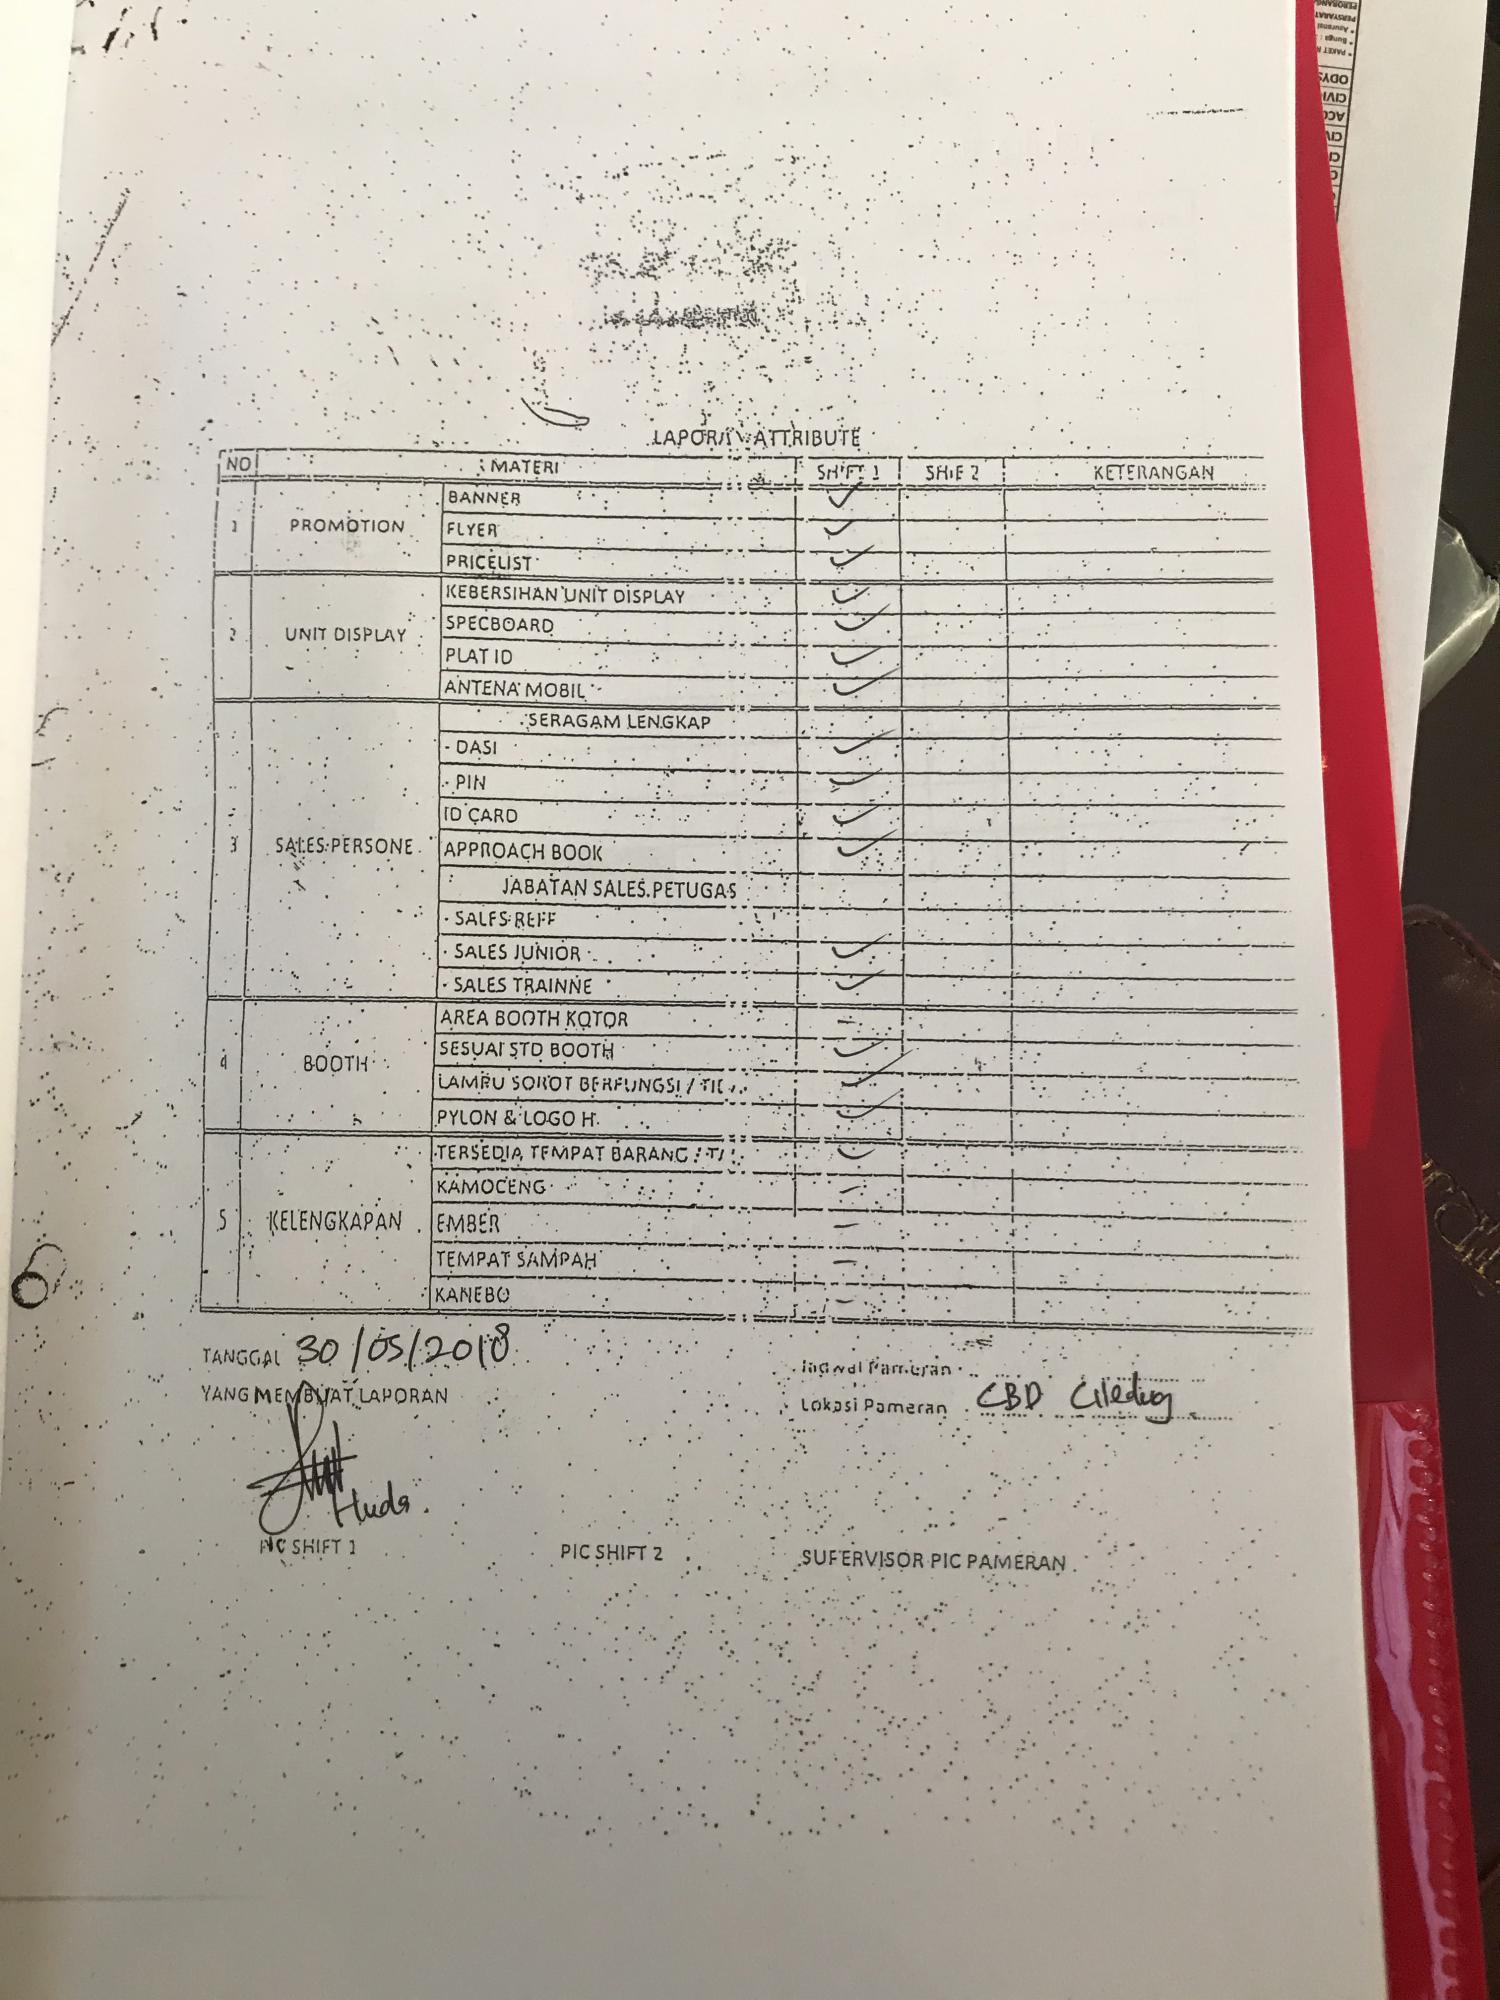 NO MATERI SHIFT 1 SHIF 2 KETERANGAN
1 PROMOTION BANNER ✓
FLYER ✓
PRICELIST ✓
2 UNIT DISPLAY KEBERSIHAN UNIT DISPLAY ✓
SPECBOARD ✓
PLAT ID ✓
ANTENA MOBIL ✓
3 SALES PERSONE SERAGAM LENGKAP
- DASI ✓
- PIN ✓
ID CARD ✓
APPROACH BOOK ✓
JABATAN SALES PETUGAS
- SALES REFF
- SALES JUNIOR ✓
- SALES TRAINNE ✓
4 BOOTH AREA BOOTH KOTOR -
SESUAI STD BOOTH ✓
LAMPU SOROT BERFUNGSI / ✓
PYLON & LOGO H ✓
5 KELENGKAPAN TERSEDIA TEMPAT BARANG ✓
KAMOCENG -
EMBER -
TEMPAT SAMPAH -
KANEBO -
TANGGAL 30/05/2018
YANG MEMBUAT LAPORAN
Pameran
Lokasi Pameran CBD Ciledug
Huda.
PIC SHIFT 1 PIC SHIFT 2 SUPERVISOR PIC PAMERAN